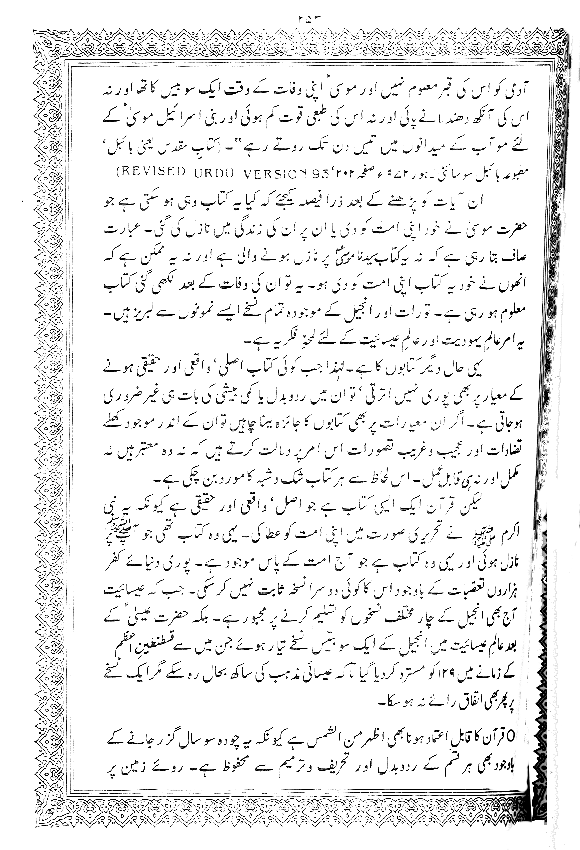 ۲۵۳
آدمی کو اس کی قبر معلوم نہیں اور موسیٰؑ اپنی وفات کے وقت ایک سو بیس کا تھا اور نہ
اس کی آنکھ دھندلانے پائی اور نہ اس کی طبعی قوت کم ہوئی اور بنی اسرائیل موسیٰؑ کے
لئے موآب کے میدانوں میں تیس دن تک روتے رہے"۔ (کتاب مقدس یعنی بائبل'
مطبوعہ بائبل سوسائٹی۔ ہور ۹۷۲ء صفحہ ۲۰۲' REVISED URDU VERSION 93)
ان آیات کو پڑھنے کے بعد ذرا فیصلہ کیجئے کہ کیا یہ کتاب وہی ہو سکتی ہے جو
حضرت موسیٰؑ نے خود اپنی امت کو دی یا ان پر ان کی زندگی میں نازل کی گئی۔ عبارت
صاف بتا رہی ہے کہ نہ یہ کتاب سیدنا موسیٰؑ پر نازل ہونے والی ہے اور نہ یہ ممکن ہے کہ
انھوں نے خود یہ کتاب اپنی امت کو دی ہو۔ یہ تو ان کی وفات کے بعد لکھی گئی کتاب
معلوم ہو رہی ہے۔ تورات اور انجیل کے موجودہ تمام نسخے ایسے نمونوں سے لبریز ہیں۔
یہ امر عالم یہودیت اور عالم عیسائیت کے لئے لمحۂ فکریہ ہے۔
یہی حال دیگر کتابوں کا ہے۔ لہٰذا جب کوئی کتاب اصلی' واقعی اور حقیقی ہونے
کے معیار پر بھی پوری نہیں اترتی' تو ان میں ردوبدل یا کمی بیشی کی بات ہی غیر ضروری
ہو جاتی ہے۔ اگر ان معیارات پر بھی کتابوں کا جائزہ لینا چاہیں تو ان کے اندر موجود کھلے
تضادات اور عجیب و غریب تصورات اس امر پر دلالت کرتے ہیں کہ نہ وہ معتبر ہیں نہ
مکمل اور نہ ہی قابل عمل۔ اس لحاظ سے ہر کتاب شک و شبہ کا مورد بن چکی ہے۔
لیکن قرآن ایک ایسی کتاب ہے جو اصل' واقعی اور حقیقی ہے کیونکہ یہ نبی
اکرم ﷺ نے تحریری صورت میں اپنی امت کو عطا کی۔ یہی وہ کتاب تھی جو آپ ﷺ پر
نازل ہوئی اور یہی وہ کتاب ہے جو آج امت کے پاس موجود ہے۔ پوری دنیائے کفر
ہزاروں تعصبات کے باوجود اس کا کوئی دوسرا نسخہ ثابت نہیں کر سکی۔ جب کہ عیسائیت
آج بھی انجیل کے چار مختلف نسخوں کو تسلیم کرنے پر مجبور ہے۔ بلکہ حضرت عیسیٰؑ کے
بعد عالم عیسائیت میں انجیل کے ایک سو بیس نسخے تیار ہوئے جن میں سے قسطنطین اعظم
کے زمانے میں ۱۲۹ کو مسترد کر دیا گیا تاکہ عیسائی مذہب کی ساکھ بحال رہ سکے مگر ایک نسخے
پر پھر بھی اتفاق رائے نہ ہو سکا۔
O قرآن کا قابل اعتماد ہونا بھی اظہر من الشمس ہے کیونکہ یہ چودہ سو سال گزر جانے کے
باوجود بھی ہر قسم کے ردوبدل اور تحریف و ترمیم سے محفوظ ہے۔ روئے زمین پر